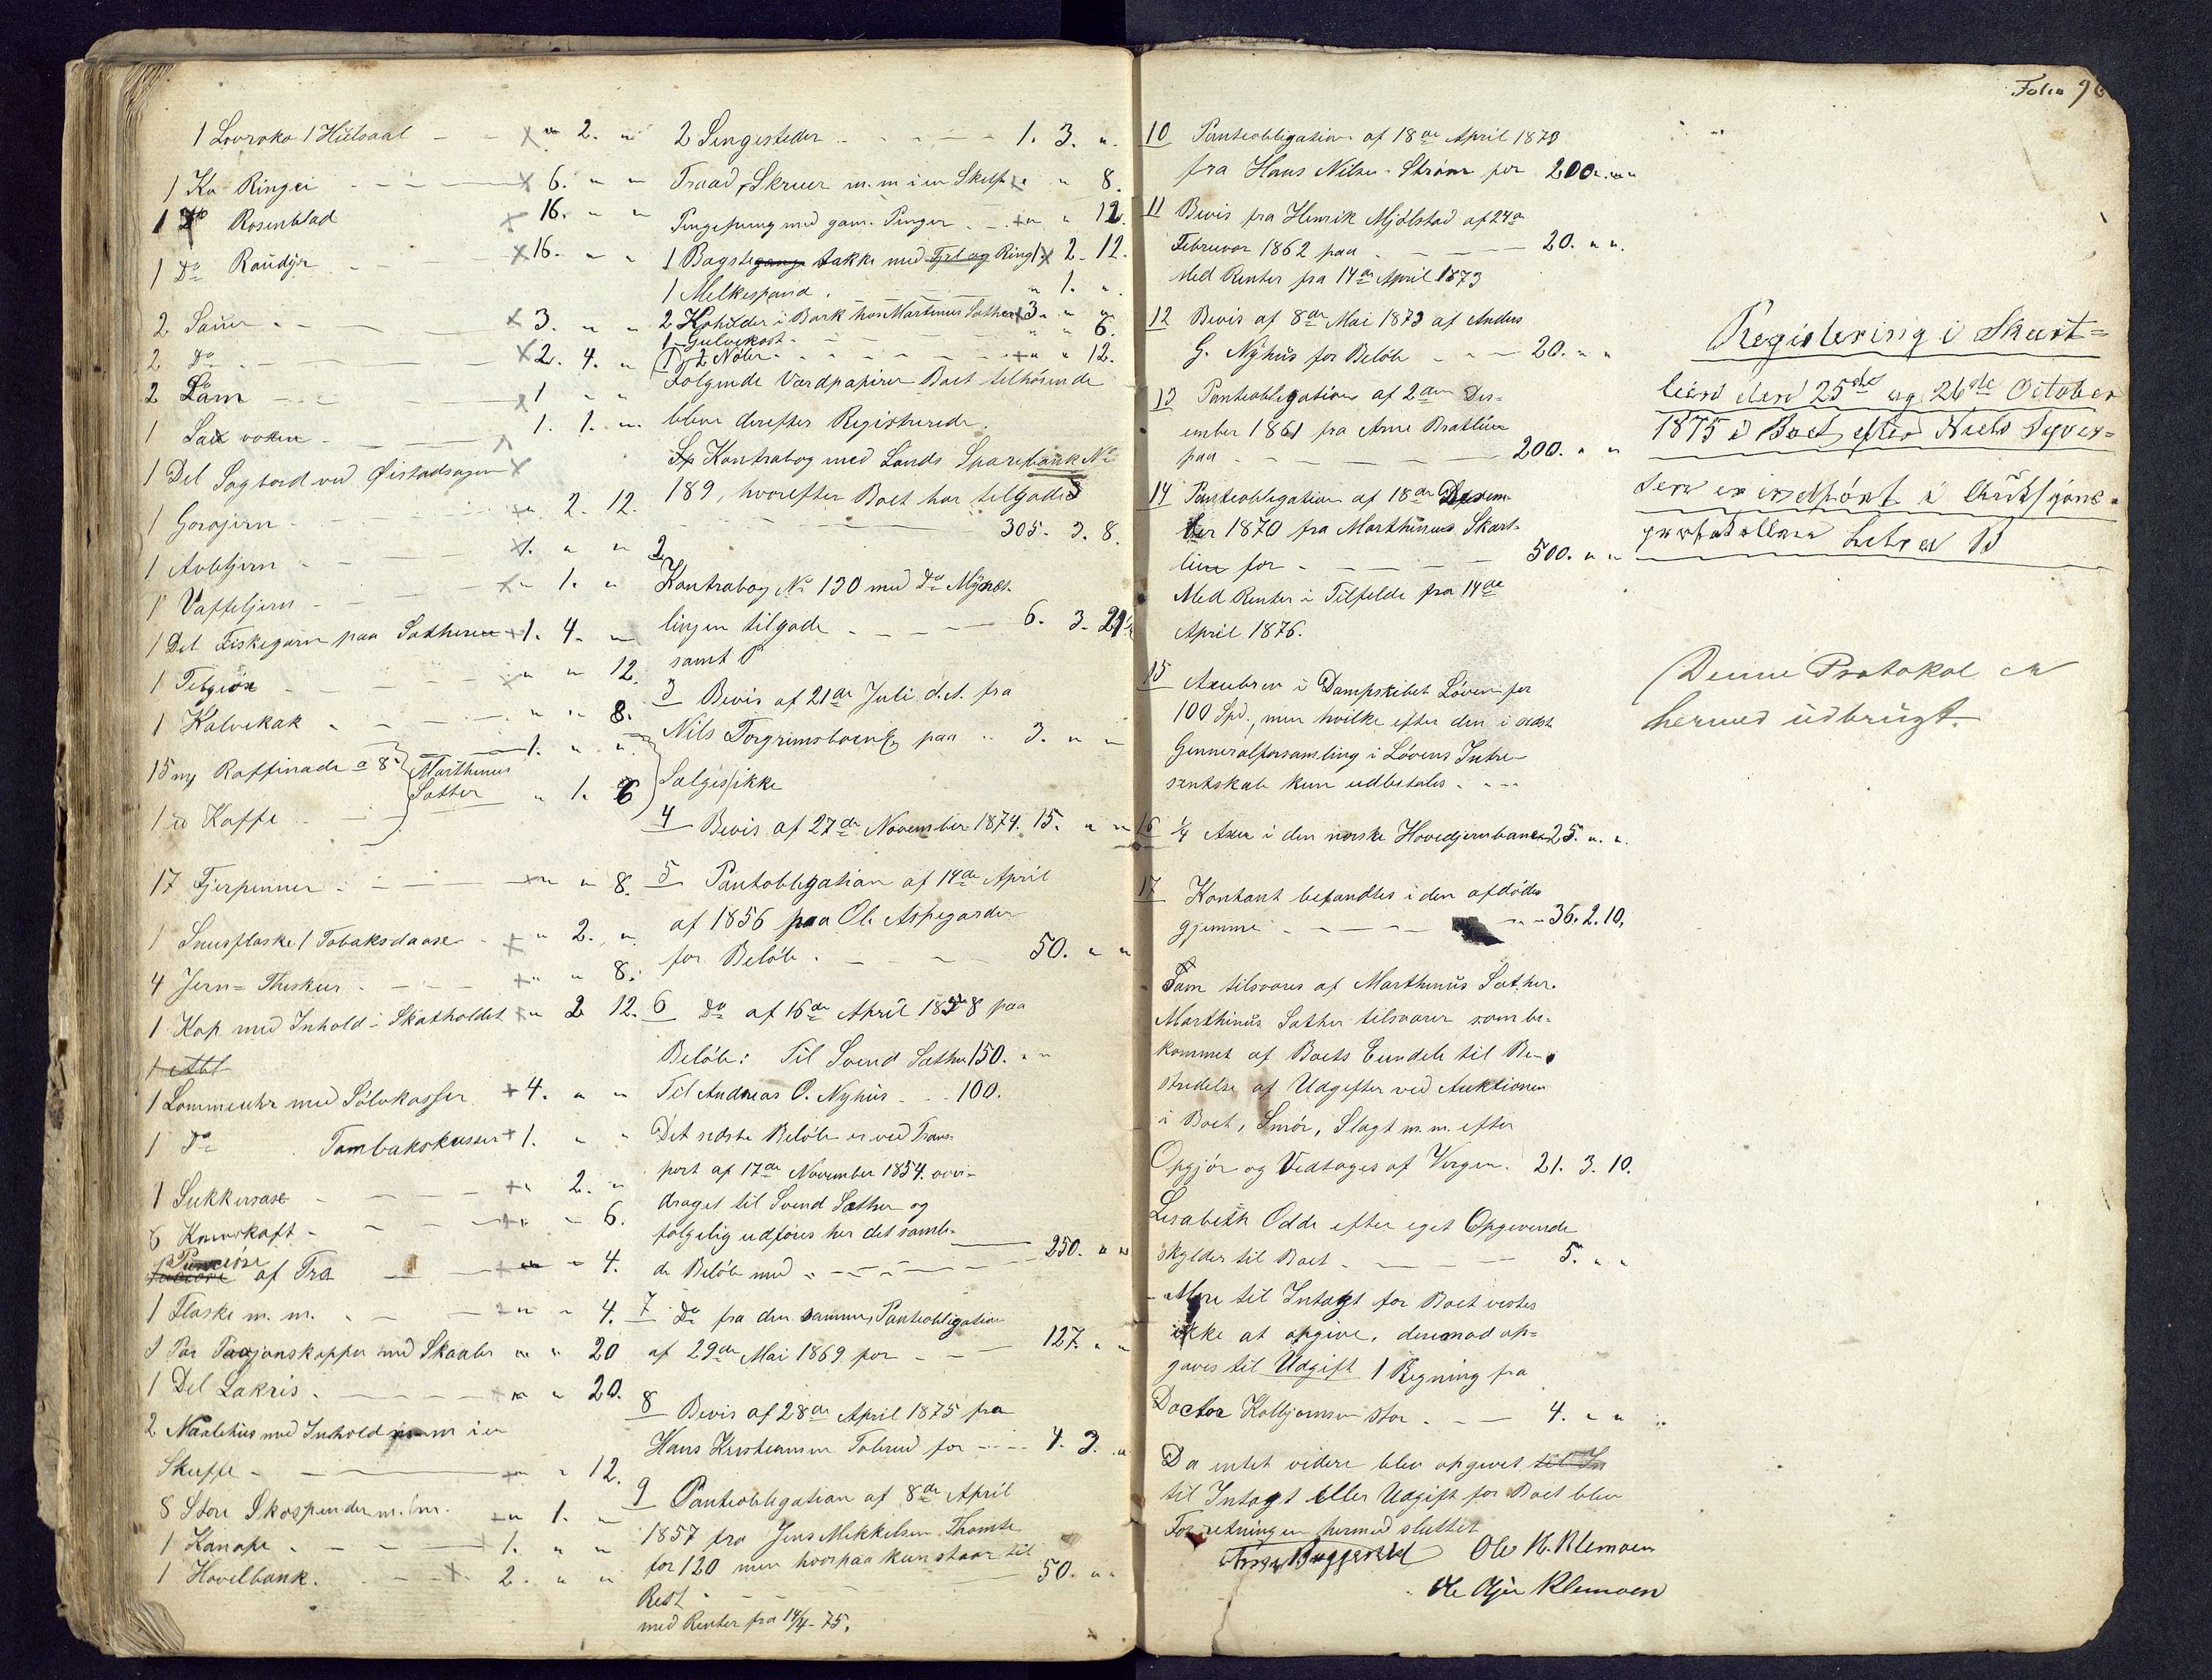 1 Hülsaal - - x " 2. "
1 Ko Ringei - - - x 6. " "
1 Do Rosenblad x 16. " "
1 Do Raüdyr - - x 16. " "
2 Saüer - - - x 3. " "
2 Do - - x 2. 4. "
2 Lam - - x 1 " "
1 - - 1. 1. "
1 Del Sagbord ved Øistadsagen x
1 Gorojern - - x " 2. 12.
1 - - x 1. " "
1 Vaffeljern - - x " 1. "
1 Del Fiskegarn paa Sætheren + 1. 4. "
1 - - x " " 12.
1 - - " " 8.
15 Raffinade a 8 Marthinus Sæther 1. " "
1 ℔ Kaffe " 1. 6
17 Fjerpenner - - x " " 8.
1 Snusflaske 1 Tobaksdaase - x " 2. "
4 Jern= - - + " " 8.
1 Kop med Inhold i Skatholdet + " 2 12.
1 Lommeuhr med Sölvkasser + 4. " "
1 Do Tombakskasser + 1. " "
1 Sukkersax - - + " 2. "
6 Knivskaft - - + " " 6.
af Træ - - + " " 4.
1 Flaske m. m. - - + " " 4.
1 Par med Skaaler " " 20
1 Del Lakris. - - + " " 20.
2 Naalehüs med Inhold m m i en
Skuffe - - + " " 12.
8 Store m.m. + " 1. "
1 Kanape - - - + 1. " "
1 Hövelbænk. - - + 2. " "
2 Sengesteder - - - 1. 3. "
Traad, Skruer m. m i en Skuf x " " 8.
Pengepung med gam. Penger - + " " 12.
1 Bagste takke med Fjel og Ring 1 x 2 - 12.
1 Melkespand. - - " 1. "
2 i Bark hos Marthinus Sæther x 3. " "
1 Gulvekost - - " " 6.
- - + " " 12.
Følgende Værdpapirer Boet tilhörende
bleve derefter Registrerede.
Kontrabog med Lands Sparebank No
189, hvorefter Boet har tilgode
- - - 305. 3. 8.
2
Kontrabog No 130 med Do
lingen tilgode - - - 6. 3. 21
samt
3 Bevis af 21de Juli d.A. fra
Nils paa " 3. " "
Sælges ikke
4 Bevis af 27de November 1874. 15. " "
5 Pantobligation af 14de April
af 1856 paa Ole Aspegarden
for Beløb. - - - 50. " "
6 Do af 16de April 1858 paa
Beløb: Til Svend Sæther 150. " "
Til Andreas O. Nyhüs - - 100.
Det sidste Beløb er ved Trans-
port af 17de November 1854. over-
draget til Svend Sæther og
følgelig udføres her det samle-
de Beløb med - - - 250. " "
7 Do fra den samme, Panteobligation
af 29de Mai 1869 for - - 127. " "
8 Bevis af 28de April 1875 fra
Hans Kristiansen for - - 4. 3. "
9 Panteobligation af 8de April
1857 fra Jens Mikkelsen Thomte
for 120 men hvorpaa kun staar til
Rest - - - 50. " "
med Renter fra 14/4 - 75.
Folio 96
10 Panteobligation af 18de April 1873
fra Hans Nilsen Strøm for 200. " "
11 Bevis fra Henrik Mjölstad af 24de
Februar 1862 paa - - 20. " "
Med Renter fra 14de April 1873
12 Bevis af 8de Mai 1873 af Anders
G. Nyhüs for Beløb - - 20. " "
13 Panteobligation af 2den Des-
ember 1861 fra Arne Bratlien
paa - - - 200. " "
14 Panteobligation af 18de Desem-
ber 1870 fra Marthinus Skart-
lien for - - - 500. " "
Med Renter i Tilfelde fra 14de
April 1876.
15 Axiebrev i Dampskibet Löven for
100 Spd., men hvilke efter den i sidste
Genneralforsamling i Lövens Intre-
sentskab kun udbetales - - -
16 1/4 Axie i den norske Hovedjernbane 25. " "
17 Kontant befandtes i den afdödes
gjemme - - - 36. 2. 10.
Som tilsvares af Marthinüs Sæther.
Marthinüs Sæther tilsvarer som be-
kommet af Boets Eiendele til Be-
stridelse af Udgifter ved Auktionen
i Boet, Smör, Slagt m. m. efter
Opgjör og Vedtages af Vergen. 21. 3. 10.
Lisabeth Odde efter eget Opgivende
skylder til Boet - - - 5. " "
Mere til Intægt for Boet vistes
ikke at opgive, derimod op=
gaves til Udgift 1 Regning fra
Doctor stor - - 4. " "
Da intet videre blev opgivet til In
til Intægt eller Udgift for Boet blev
Forretningen hermed sluttet
Ole H. Klemoen
Klemoen
Registering i Skart=
lien den 25de og 26de October
1875 i Boet efter Niels Syver=
sen er endført i Aüktions=
protokollen Letra B
Denne Protokol er
hermed üdbrügt.